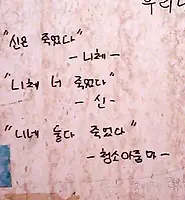 우리나
"신은 죽었다"
- 니체 -
"니체 너 죽었다"
- 신 -
"니네 둘다 죽었다"
- 청소아줌마 -